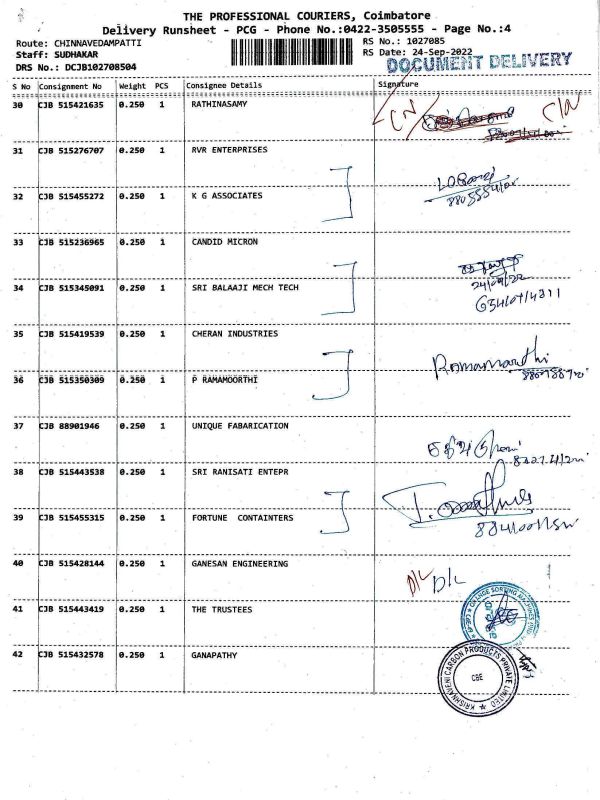 THE PROFESSIONAL COURIERS, Coimbatore
Delivery Runsheet - PCG - Phone No.:0422-3505555 - Page No.:4
Route: CHINNAVEDAMPATTI
Staff: SUDHAKAR
DRS No.: DCJB102708504
RS No.: 1027085
RS Date: 24-Sep-2022
DOCUMENT DELIVERY
S No Consignment No Weight PCS Consignee Details Signature
30 CJB 515421635 0.250 1 RATHINASAMY
31 CJB 515276707 0.250 1 RVR ENTERPRISES
32 CJB 515455272 0.250 1 K G ASSOCIATES
33 CJB 515236965 0.250 1 CANDID MICRON
34 CJB 515345091 0.250 1 SRI BALAAJI MECH TECH
24/09/22
35 CJB 515419539 0.250 1 CHERAN INDUSTRIES
Ramamoorthi
36 CJB 515350309 0.250 1 P RAMAMOORTHI
37 CJB 88901946 0.250 1 UNIQUE FABARICATION
38 CJB 515443538 0.250 1 SRI RANISATI ENTEPR
39 CJB 515455315 0.250 1 FORTUNE CONTAINTERS
40 CJB 515428144 0.250 1 GANESAN ENGINEERING
D/L D/L
41 CJB 515443419 0.250 1 THE TRUSTEES
42 CJB 515432578 0.250 1 GANAPATHY
KRISHNAVENI CARBON PRODUCTS PRIVATE LIMITED
CBE